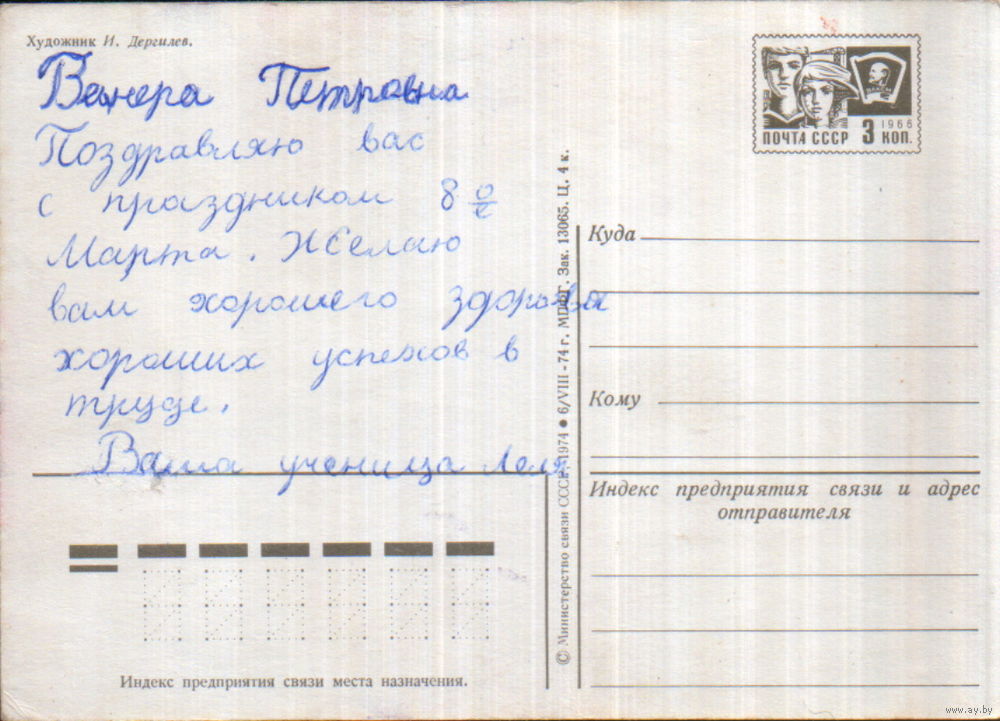 Художник И. Дергилев.
Венера Петровна
Поздравляю вас
с праздником 8 е
Марта. Желаю
вам хорошего здоровья
хороших успехов в
труде.
Ваша ученица Леля
ПОЧТА СССР 3 КОП.
1966
ВЛКСМ
Куда
Кому
Индекс предприятия связи и адрес
отправителя
© Министерство связи СССР, 1974 ● 6/VIII-74 г. МПФГ. Зак. 13065. Ц. 4 к.
Индекс предприятия связи места назначения.
www.ay.by